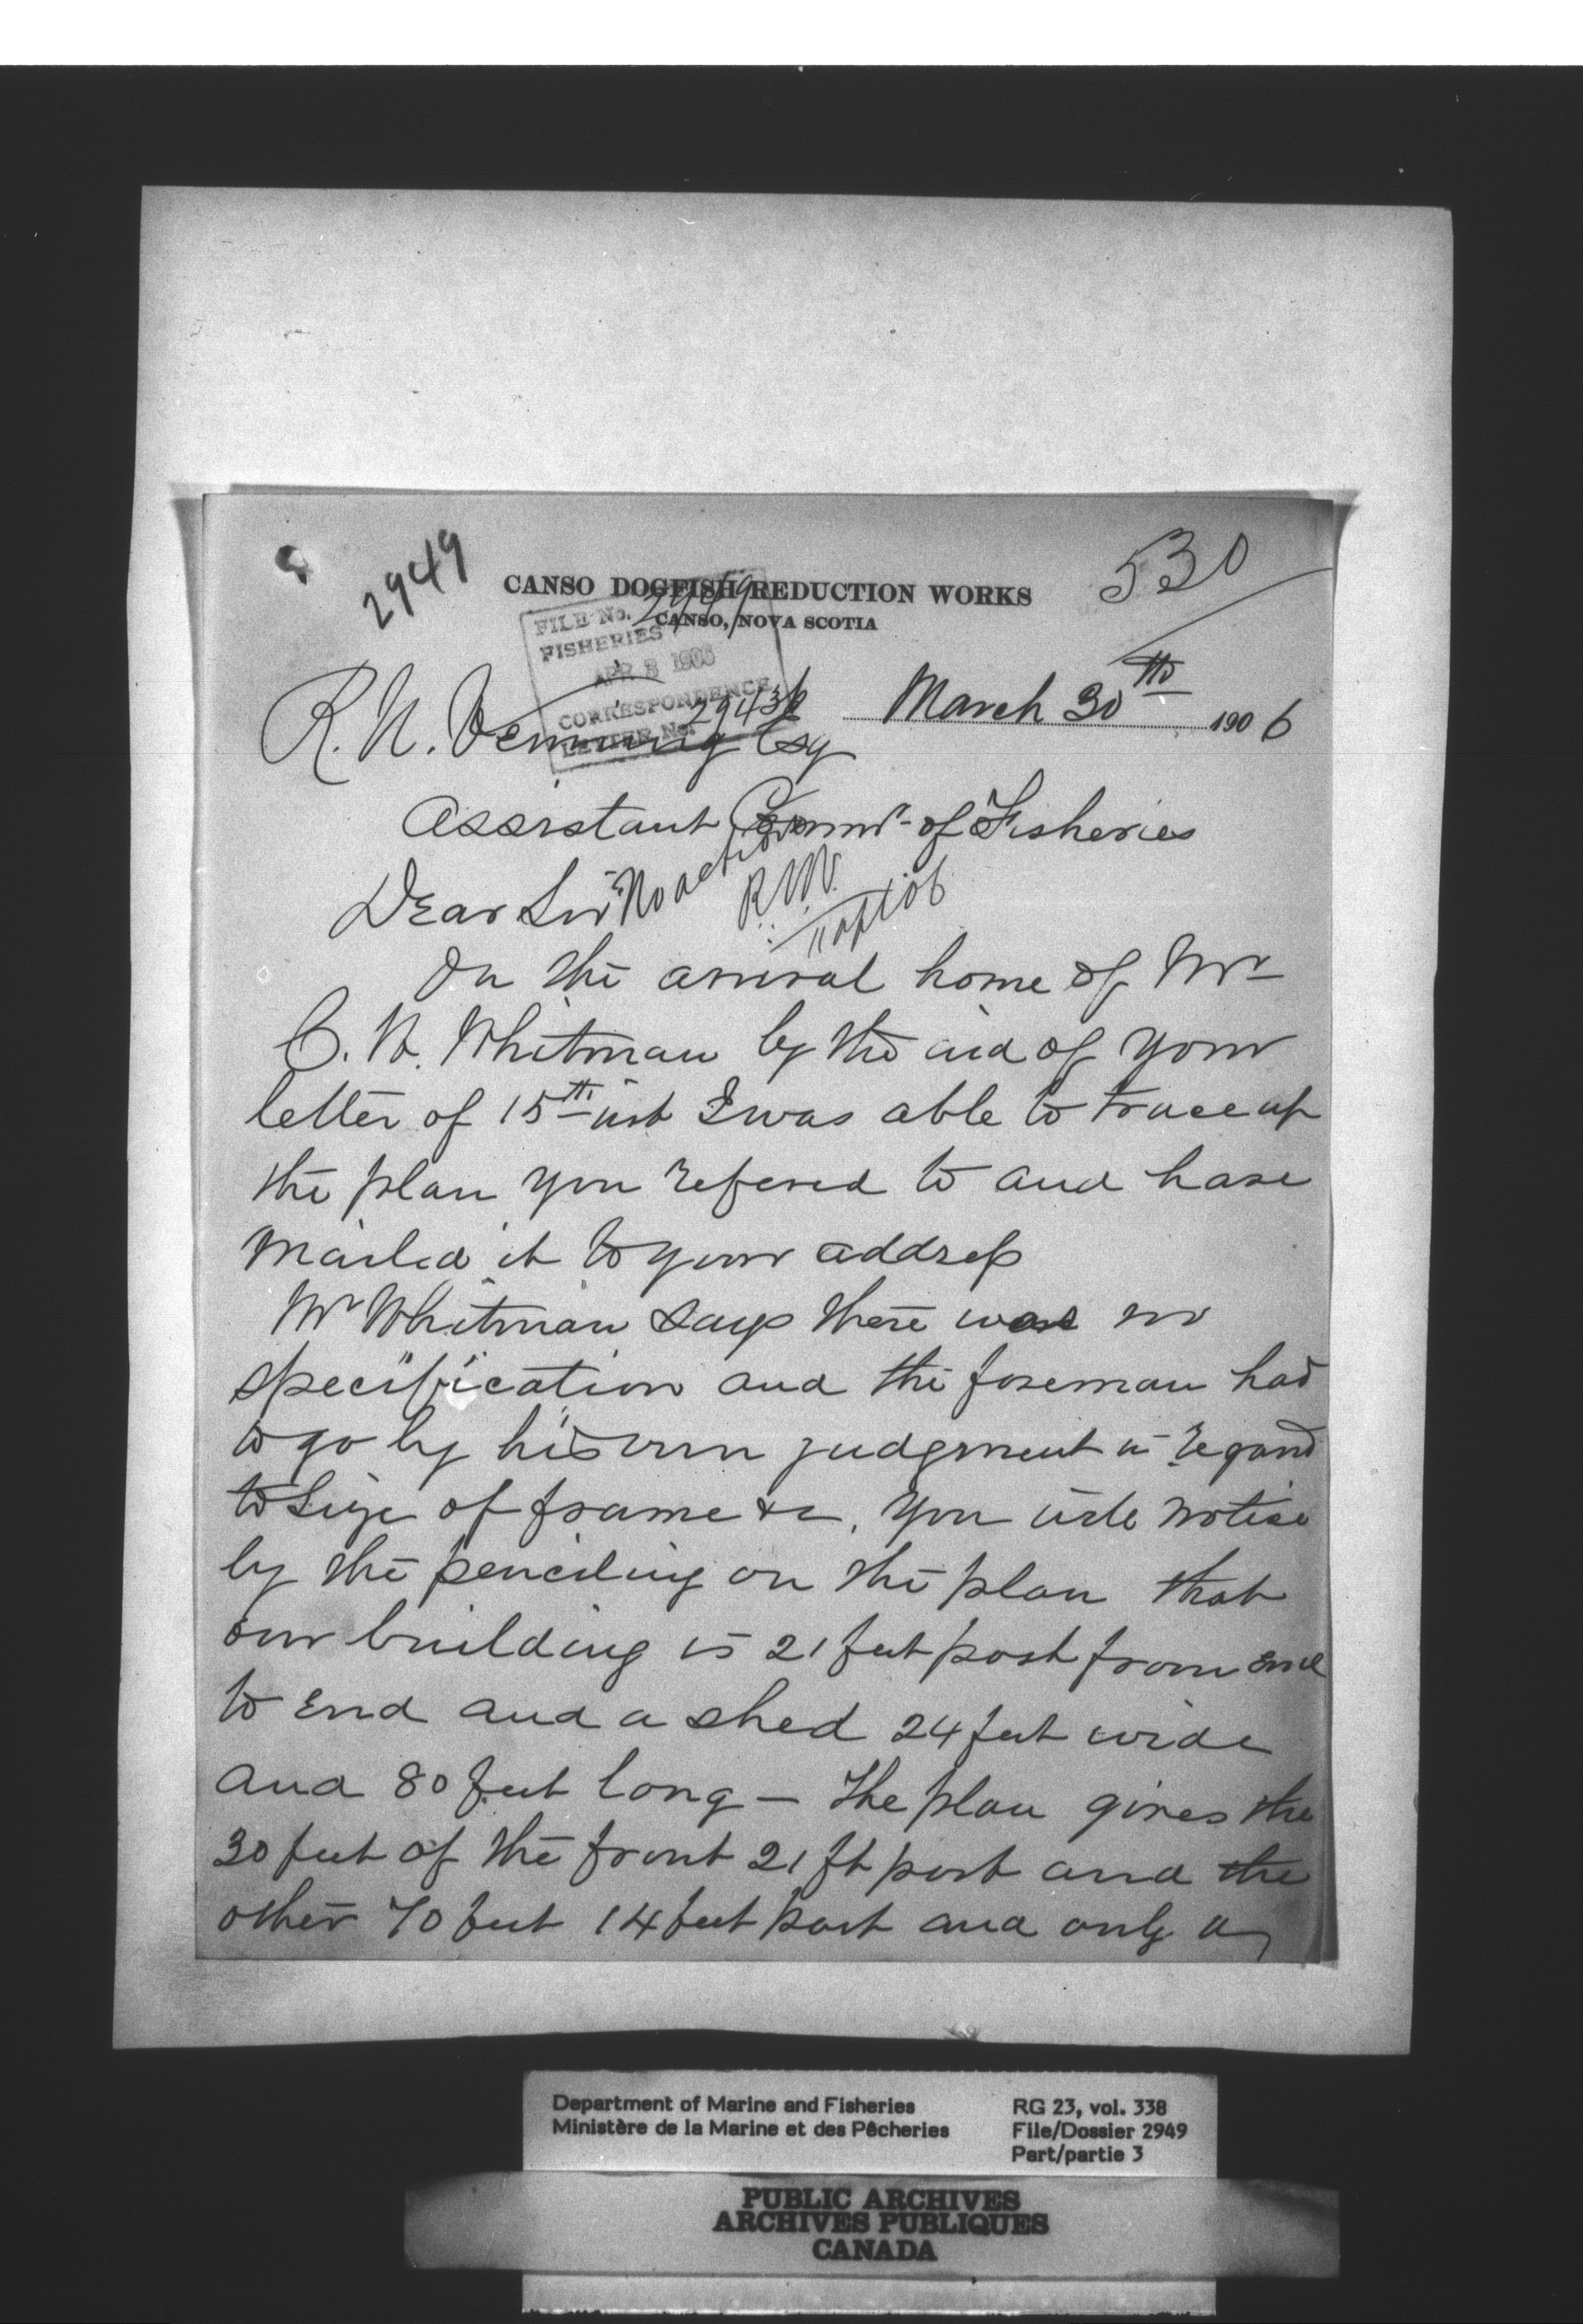 2949
530
CANSO DOGFISH REDUCTION WORKS
CANSO, NOVA SCOTIA
FILE No. 2949
FISHERIES
APR 3 1906
CORRESPONDENCE
LETTER No.
March 30th 1906
R. N. Venning Esq
Assistant Commr. of Fisheries
No action
R.N.V.
Dear Sir
On the arrival home of Mr
C. H. Whitman by the aid of your
letter of 15th inst I was able to trace up
the plan you refered to and have
mailed it to your address
Mr Whitman says there was no
specification and the foreman had
to go by his own judgment in regard
to size of frame &c. You will notice
by the penciling on the plan that
our building is 21 feet post from end
to end and a shed 24 feet wide
and 80 feet long — The plan gives the
30 feet of the front 21 ft post and the
other 70 feet 14 feet post and only a
Department of Marine and Fisheries
Ministère de la Marine et des Pêcheries
RG 23, vol. 338
File/Dossier 2949
Part/partie 3
PUBLIC ARCHIVES
ARCHIVES PUBLIQUES
CANADA